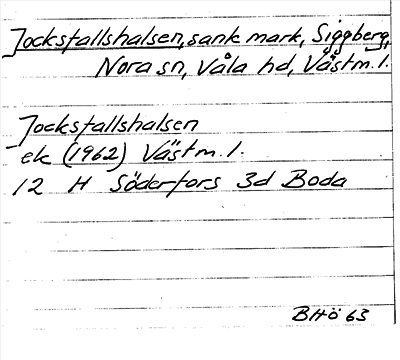 Jockstallshalsen, sank mark, Siggberg,
Nora sn, Våla hd, Västm. l.
Jockstallshalsen
ek (1962) Västm. l.
12 H Söderfors 3d Boda
BHö 63